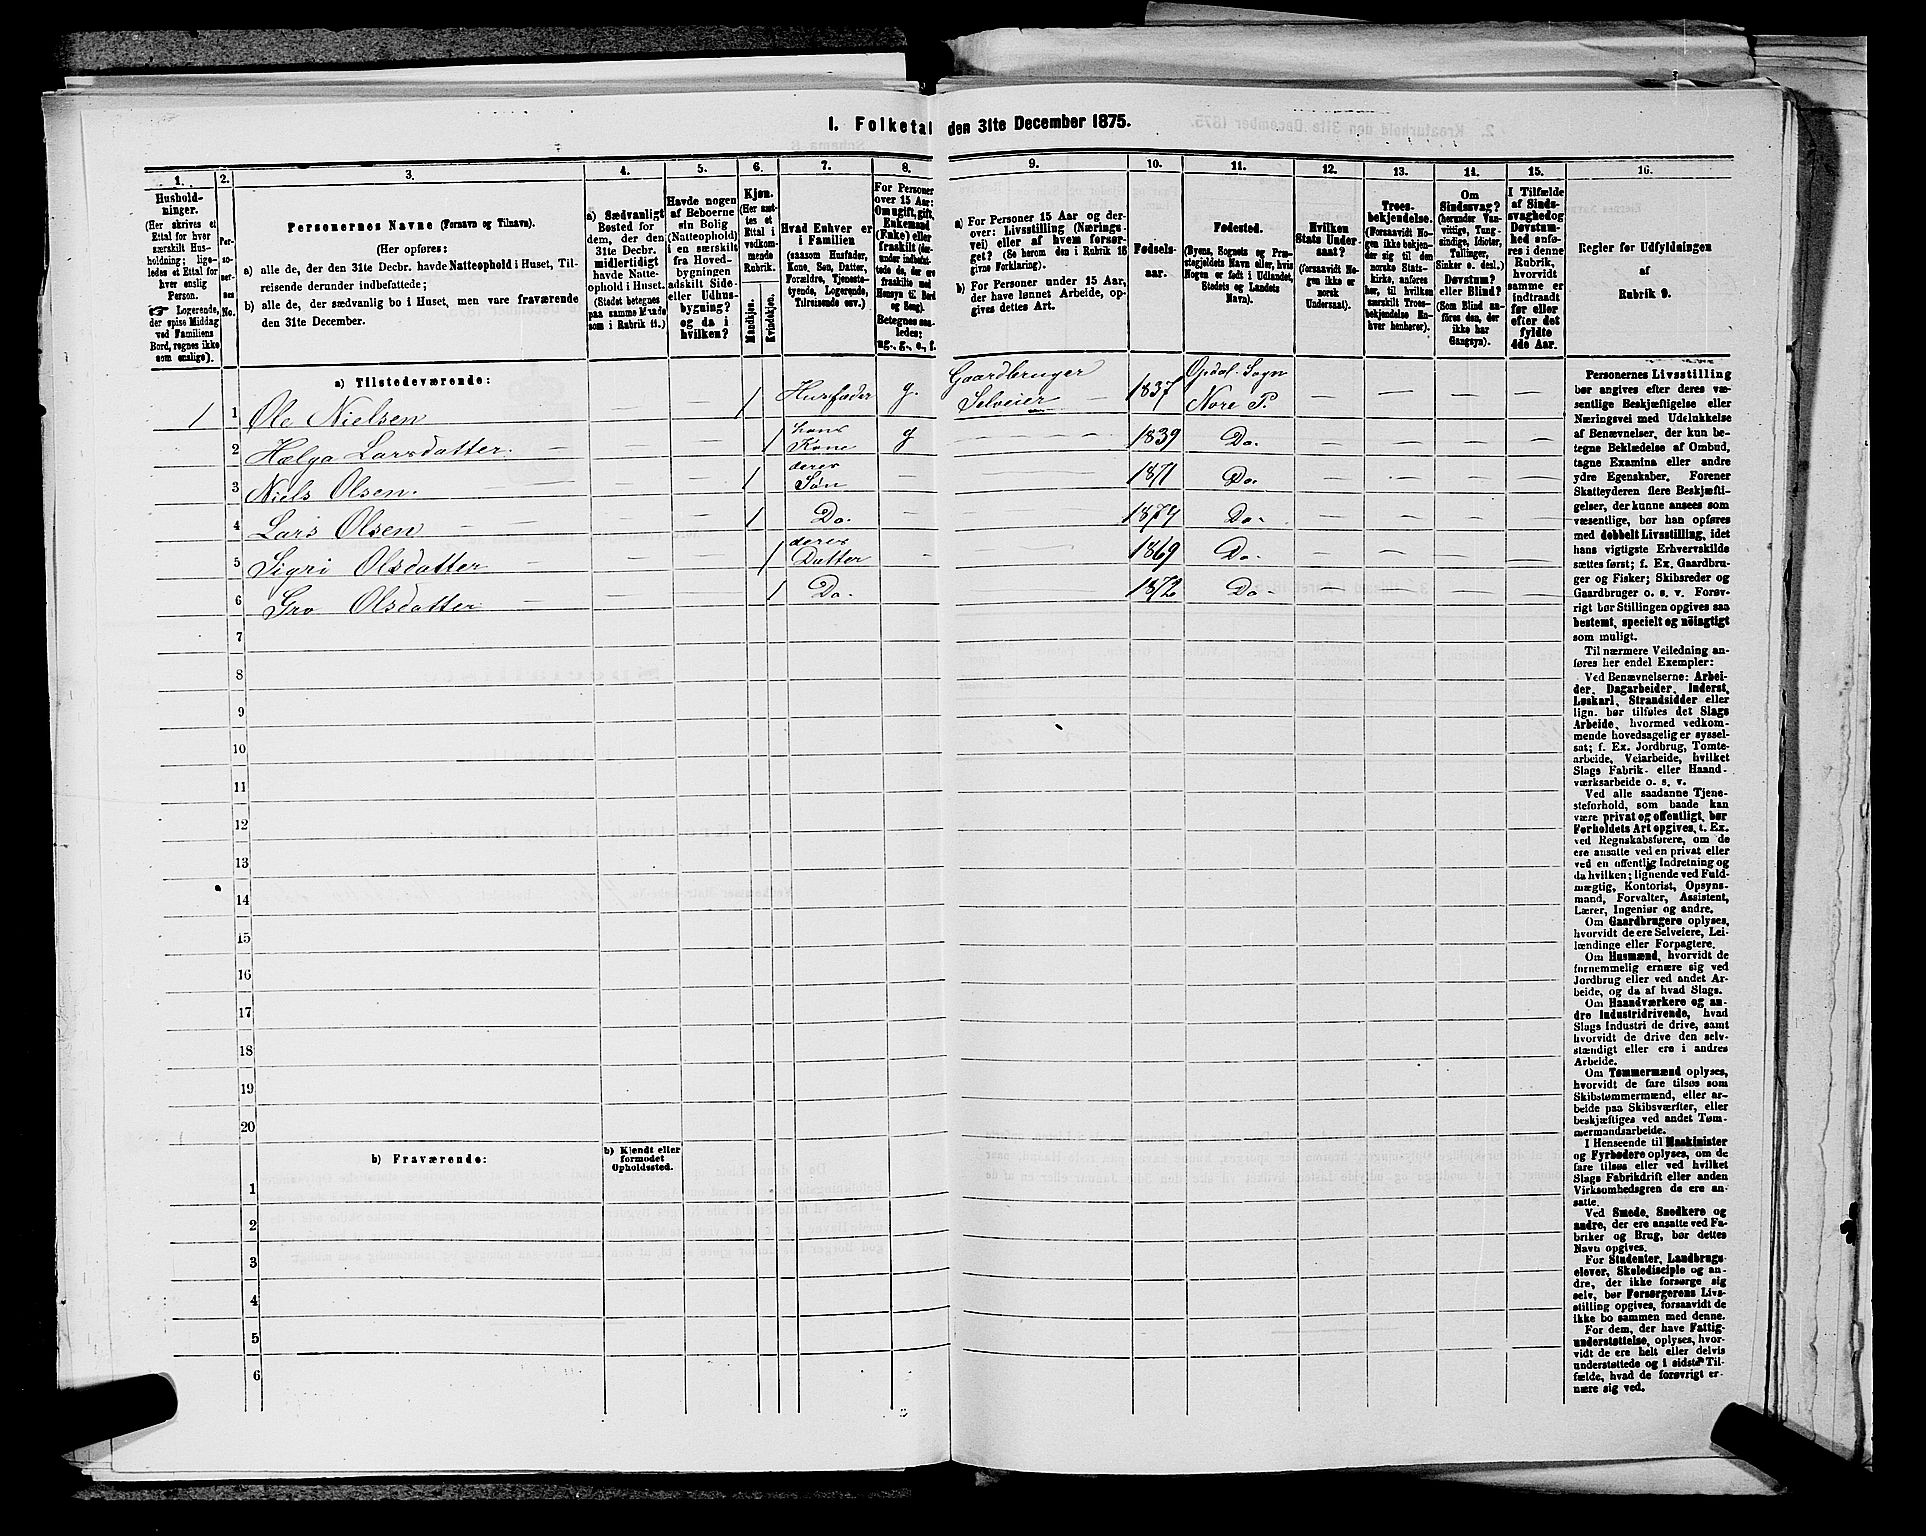 I. Folketal den 31te December 1875.
1.
Hushold-
ninger.
(Her skrives et
Ettal for hver
særskilt Hus-
holdning; lige-
ledes et Ettal for
hver enslig
Person.
☞ Logerende,
der spise Middag
ved Familiens
Bord, regnes ikke
som enslige).
2.
Per-
so-
ner-
nes
No.
3.
Personernes Navne (Fornavn og Tilnavn).
(Her opføres:
a) alle de, der den 31te Decbr. havde Natteophold i Huset, Til-
reisende derunder indbefattede;
b) alle de, der sædvanlig bo i Huset, men vare fraværende
den 31te December.
4.
a) Sædvanligt
Bosted for
dem, der den
31te Decbr.
midlertidigt
havde Natte-
ophold i Huset.
(Stedet betegnes
paa samme Maade
som i Rubrik 11.)
5.
Havde nogen
af Beboerne
sin Bolig
(Natteophold)
i en særskilt
fra Hoved-
bygningen
adskilt Side-
eller Udhus-
bygning?
og da i
hvilken?
6.
Kjøn.
(Her sæt-
tes et
Ettal i
vedkom-
mende
Rubrik.
Mandkjøn.
Kvindekjøn.
7.
Hvad Enhver er
i Familien
(saasom Husfader,
Kone, Søn, Datter,
Forældre, Tjeneste-
tyende, Logerende,
Tilreisende osv.)
8.
For Personer
over 15 Aar:
Om ugift, gift,
Enkemand
(Enke) eller
fraskilt (der-
under indbefat-
tede de, der ere
fraskilte med
Hensyn til Bord
og Seng).
Betegnes saa-
ledes:
ug., g., e., f.
9.
a) For Personer 15 Aar og der-
over: Livsstilling (Nærings-
vei) eller af hvem forsør-
get? (Se herom den i Rubrik 16
givne Forklaring).
b) For Personer under 15 Aar,
der have lønnet Arbeide, op-
gives dettes Art.
10.
Fødsels-
aar.
11.
Fødested.
(Byens, Sognets og Præ-
stegjeldets Navn eller, hvis
Nogen er født i Udlandet,
Stedets og Landets
Navn).
12.
Hvilken
Stats Under-
saat?
(forsaavidt No-
gen ikke er
norsk
Undersaat).
13.
Troes-
bekjendelse.
(Forsaavidt No-
gen ikke bekjen-
der sig til den
norske Stats-
kirke, anføres
her, til hvilken
særskilt Troes-
bekjendelse En-
hver henhører).
14.
Om
Sindssvag?
(herunder Van-
vittige, Tung-
sindige, Idioter,
Tullinger,
Sinker o. desl.)
Døvstum?
eller Blind?
(Som Blind an-
føres den, der
ikke har
Gangsyn).
15.
I Tilfælde
af Sinds-
svaghed og
Døvstum-
hed anfø-
res i denne
Rubrik,
hvorvidt
samme er
indtraadt
før eller
efter det
fyldte
4de Aar.
16.
Regler for Udfyldningen
af
Rubrik 9.
a) Tilstedeværende:
1 1 Ole Nielsen — — 1 Husfader g. Gaardbruger Selveier 1837 Opdal Sogn Nore P. — — — —
2 Helga Larsdatter — — — 1 hans Kone g — 1839 Do. — — — —
3 Niels Olsen. — — 1 deres Søn — — 1871 Do. — — — —
4 Lars Olsen — — — — 1 Do. — — 1874 Do. — — — —
5 Sigri Olsdatter — — 1 deres Datter — — 1869 Do. — — — —
6 Gro Olsdatter — — 1 Do. — — 1872 Do. — — — —
7
8
9
10
11
12
13
14
15
16
17
18
19
20
b) Fraværende:
b) Kjendt eller
formodet
Opholdssted.
1
2
3
4
5
6
Personernes Livsstilling
bør angives efter deres væ-
sentlige Beskjæftigelse eller
Næringsvei med Udelukkelse
af Benævnelser, der kun be-
tegne Beklædelse af Ombud,
tagne Examina eller andre
ydre Egenskaber. Forener
Skatteyderen flere Beskjæfti-
gelser, der kunne ansees som
væsentlige, bør han opføres
med dobbelt Livsstilling, idet
hans vigtigste Erhvervskilde
sættes først; f. Ex. Gaardbru-
ger og Fisker; Skibsreder og
Gaardbruger o. s. v. Forøv-
rigt bør Stillingen opgives saa
bestemt, specielt og nøiagtigt
som muligt.
Til nærmere Veiledning an-
føres her endel Exempler:
Ved Benævnelserne: Arbei-
der, Dagarbeider, Inderst,
Løskarl, Strandsidder eller
lign. bør tilføies det Slags
Arbeide, hvormed vedkom-
mende hovedsagelig er syssel-
sat; f. Ex. Jordbrug, Tomte-
arbeide, Veiarbeide, hvilket
Slags Fabrik- eller Haand-
værksarbeide o. s. v.
Ved alle saadanne Tjene-
steforhold, som baade kan
være privat og offentligt, bør
Forholdets Art opgives, t. Ex.
ved Regnskabsførere, om de
ere ansatte ved en privat eller
ved en offentlig Indretning og
da hvilken; lignende ved Fuld-
mægtig, Kontorist, Opsyns-
mand, Forvalter, Assistent,
Lærer, Ingeniør og andre.
Om Gaardbrugere oplyses,
hvorvidt de ere Selveiere, Lei-
lændinge eller Forpagtere.
Om Husmænd, hvorvidt de
fornemmelig ernære sig ved
Jordbrug eller ved andet Ar-
beide, og da af hvad Slags.
Om Haandværkere og an-
dre Industridrivende, hvad
Slags Industri de drive, samt
hvorvidt de drive den selv-
stændigt eller ere i andres
Arbeide.
Om Tømmermænd oplyses,
hvorvidt de fare tilsøs som
Skibstømmermænd, eller ar-
beide paa Skibsværfter, eller
beskjæftiges ved andet Tøm-
mermandsarbeide.
I Henseende til Maskinister
og Fyrbødere oplyses, om de
fare tilsøs eller ved hvilket
Slags Fabrikdrift eller anden
Virksomhedsgren de ere an-
satte.
Ved Smede, Snedkere og
andre, der ere ansatte ved Fa-
briker og Brug, bør dettes
Navn opgives.
For Studenter, Landbrugs-
elever, Skoledisciple og an-
dre, der ikke forsørge sig
selv, bør Forsørgerens Livs-
stilling opgives, forsaavidt de
ikke bo sammen med denne.
For dem, der have Fattig-
understøttelse, oplyses, hvor-
vidt de ere helt eller delvis
understøttede og i sidste Til-
fælde, hvad de forøvrigt er-
nære sig ved.